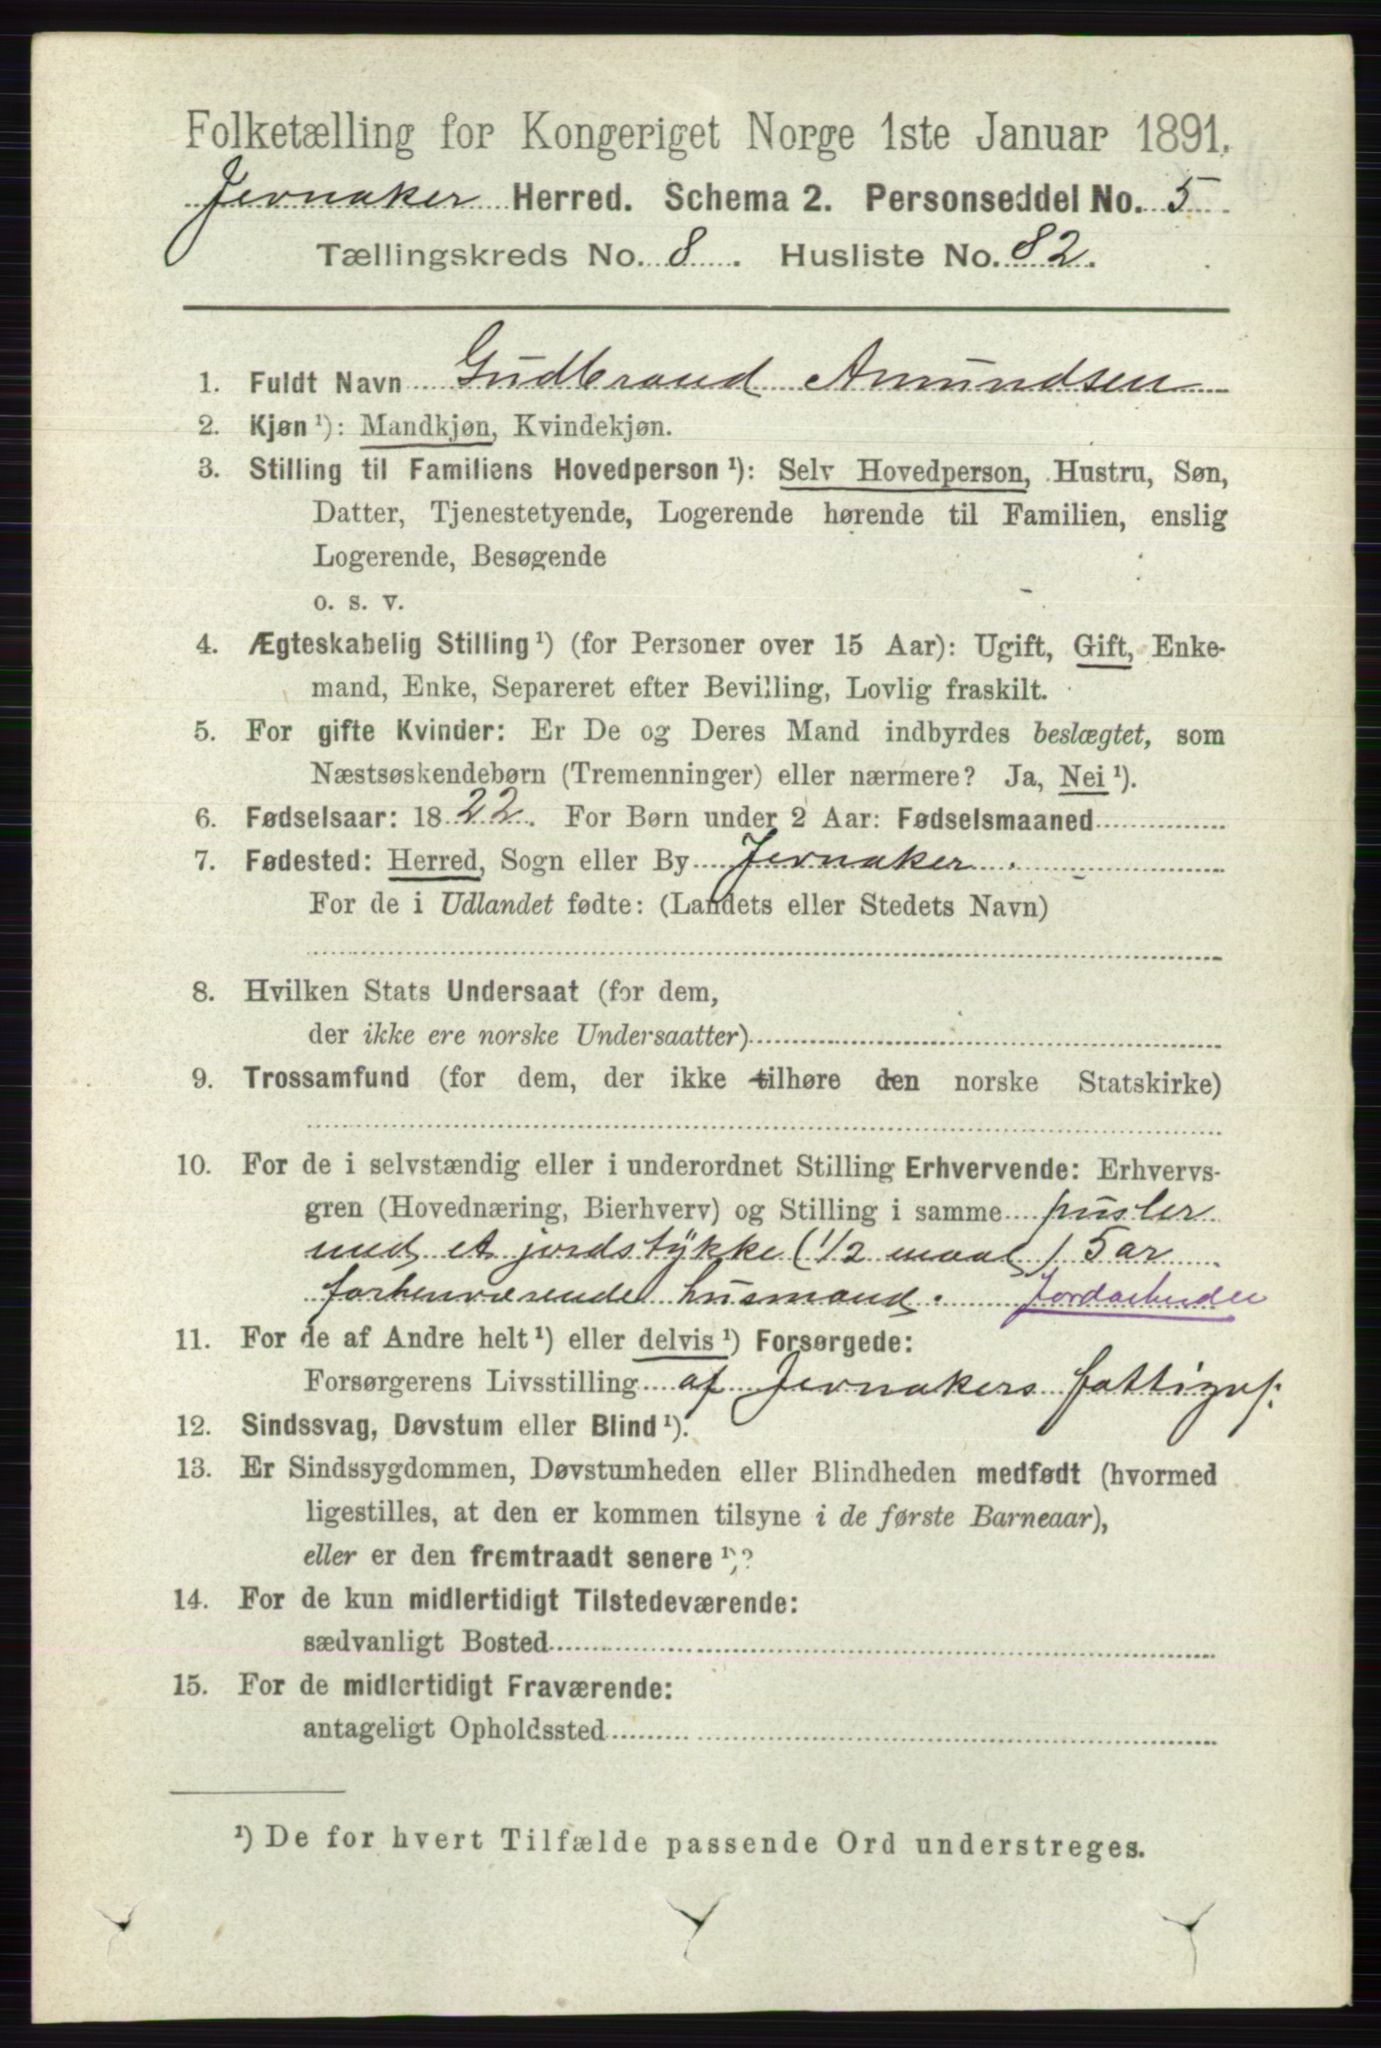 Folketælling for Kongeriget Norge 1ste Januar 1891.
Jevnaker Herred. Schema 2. Personseddel No. 5
Tællingskreds No. 8. Husliste No. 82.
1. Fuldt Navn Gudbrand Amundsen
2. Kjøn ¹): Mandkjøn, Kvindekjøn.
3. Stilling til Familiens Hovedperson ¹): Selv Hovedperson, Hustru, Søn,
Datter, Tjenestetyende, Logerende hørende til Familien, enslig
Logerende, Besøgende
o. s. v.
4. Ægteskabelig Stilling ¹) (for Personer over 15 Aar): Ugift, Gift, Enke-
mand, Enke, Separeret efter Bevilling, Lovlig fraskilt.
5. For gifte Kvinder: Er De og Deres Mand indbyrdes beslægtet, som
Næstsøskendebørn (Tremenninger) eller nærmere? Ja, Nei ¹).
6. Fødselsaar: 1822. For Børn under 2 Aar: Fødselsmaaned
7. Fødested: Herred, Sogn eller By Jevnaker.
For de i Udlandet fødte: (Landets eller Stedets Navn)
8. Hvilken Stats Undersaat (for dem,
der ikke ere norske Undersaatter)
9. Trossamfund (for dem, der ikke tilhøre den norske Statskirke)
10. For de i selvstændig eller i underordnet Stilling Erhvervende: Erhvervs-
gren (Hovednæring, Bierhverv) og Stilling i samme pusler
med et jordstykke (1/2 maal) 5 ar
forhenværende husmand. Jordarbeider
11. For de af Andre helt ¹) eller delvis ¹) Forsørgede:
Forsørgerens Livsstilling af Jevnakers fattigv.
12. Sindssvag, Døvstum eller Blind ¹).
13. Er Sindssygdommen, Døvstumheden eller Blindheden medfødt (hvormed
ligestilles, at den er kommen tilsyne i de første Barneaar),
eller er den fremtraadt senere ¹)?
14. For de kun midlertidigt Tilstedeværende:
sædvanligt Bosted
15. For de midlertidigt Fraværende:
antageligt Opholdssted
¹) De for hvert Tilfælde passende Ord understreges.